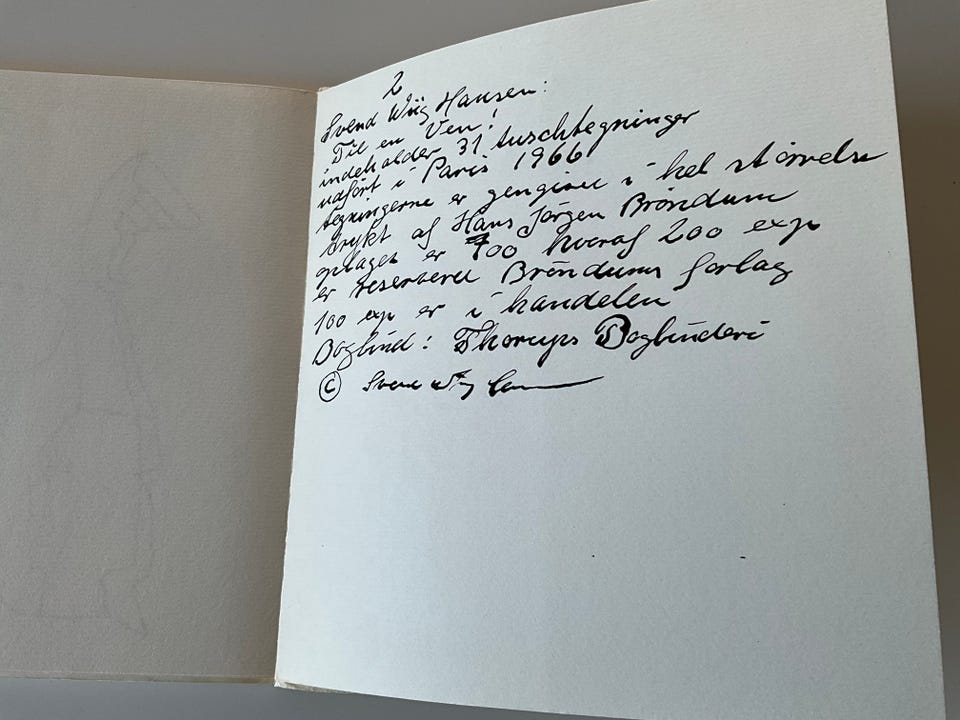 2
Svend Wiig Hansen:
Til en Ven!
indeholder 31 tuschtegninger
udført i Paris 1966
tegningerne er gengivet i hel størrelse
trykt af Hans Jörgen Bröndum
oplaget er 400 hvoraf 200 exp
er reserveret Bröndums forlag
100 exp er i handelen
Bogbind: Thorups Bogbinderi
© Svend Wiig Hansen